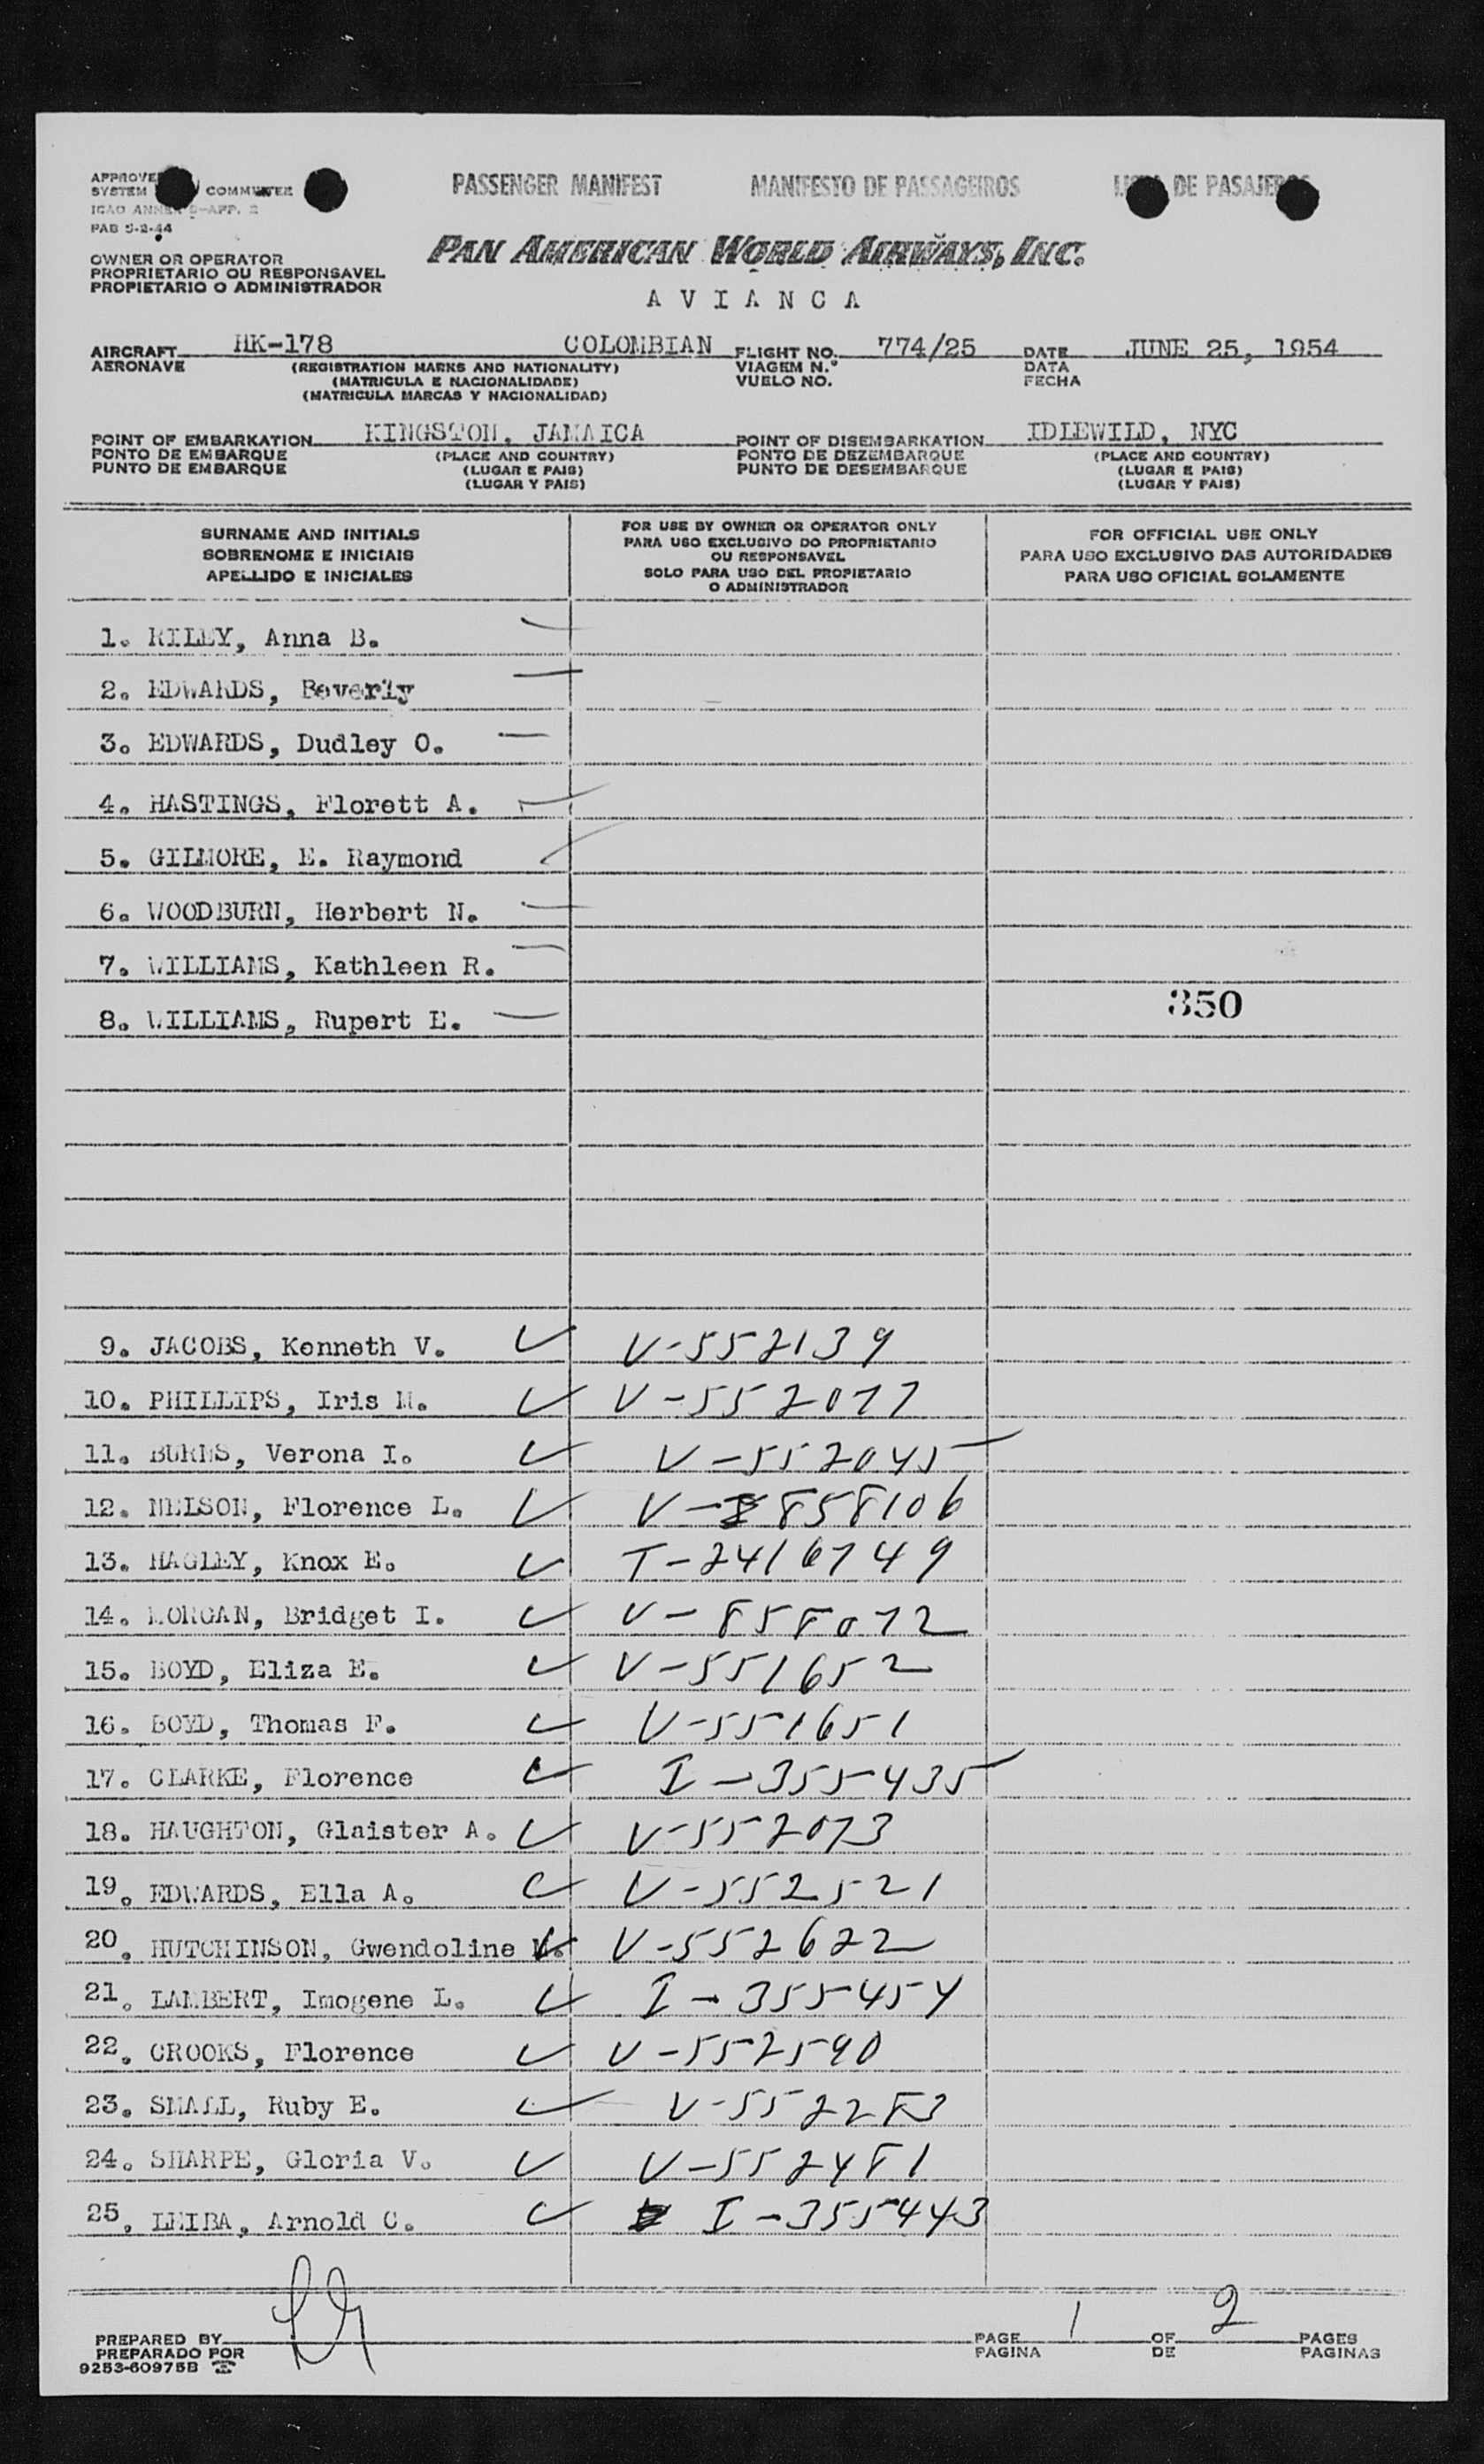 PASSENGER MANIFEST MANIFESTO DE PASSAGEIROS DE PASAJEROS
APPROVED
SYSTEM COMMITTEE
ICAO ANNEX 9-APP. 2
PAB 5-2-44
PAN AMERICAN WORLD AIRWAYS, INC.
OWNER OR OPERATOR
PROPRIETARIO OU RESPONSAVEL
PROPIETARIO O ADMINISTRADOR
AVIANCA
AIRCRAFT HK-178 COLOMBIAN FLIGHT NO. 774/25 DATE JUNE 25, 1954
AERONAVE (REGISTRATION MARKS AND NATIONALITY) VIAGEM N.º DATA
(MATRICULA E NACIONALIDADE) VUELO NO. FECHA
(MATRICULA MARCAS Y NACIONALIDAD)
POINT OF EMBARKATION KINGSTON, JAMAICA POINT OF DISEMBARKATION IDLEWILD, NYC
PONTO DE EMBARQUE (PLACE AND COUNTRY) PONTO DE DEZEMBARQUE (PLACE AND COUNTRY)
PUNTO DE EMBARQUE (LUGAR E PAIS) PUNTO DE DESEMBARQUE (LUGAR E PAIS)
(LUGAR Y PAIS) (LUGAR Y PAIS)
SURNAME AND INITIALS
SOBRENOME E INICIAIS
APELLIDO E INICIALES
FOR USE BY OWNER OR OPERATOR ONLY
PARA USO EXCLUSIVO DO PROPRIETARIO
OU RESPONSAVEL
SOLO PARA USO DEL PROPIETARIO
O ADMINISTRADOR
FOR OFFICIAL USE ONLY
PARA USO EXCLUSIVO DAS AUTORIDADES
PARA USO OFICIAL SOLAMENTE
1. RILEY, Anna B.
2. EDWARDS, Beverly
3. EDWARDS, Dudley O.
4. HASTINGS, Florett A.
5. GILMORE, E. Raymond
6. WOODBURN, Herbert N.
7. WILLIAMS, Kathleen R.
8. WILLIAMS, Rupert E. 350
9. JACOBS, Kenneth V. ✓ V-552139
10. PHILLIPS, Iris M. ✓ V-552077
11. BURNS, Verona I. ✓ V-552045
12. NELSON, Florence L. ✓ V-858106
13. HAGLEY, Knox E. ✓ T-2416749
14. MORGAN, Bridget I. ✓ V-858072
15. BOYD, Eliza E. ✓ V-551652
16. BOYD, Thomas F. ✓ V-551651
17. CLARKE, Florence ✓ I-355435
18. HAUGHTON, Glaister A. ✓ V-552073
19. EDWARDS, Ella A. ✓ V-552521
20. HUTCHINSON, Gwendoline ✓ V-552622
21. LAMBERT, Imogene L. ✓ I-355454
22. CROOKS, Florence ✓ V-552590
23. SMALL, Ruby E. ✓ V-552283
24. SHARPE, Gloria V. ✓ V-552481
25. LEIBA, Arnold C. ✓ I-355443
PREPARED BY PAGE 1 OF 2 PAGES
PREPARADO POR PAGINA DE PAGINAS
9253-60975B